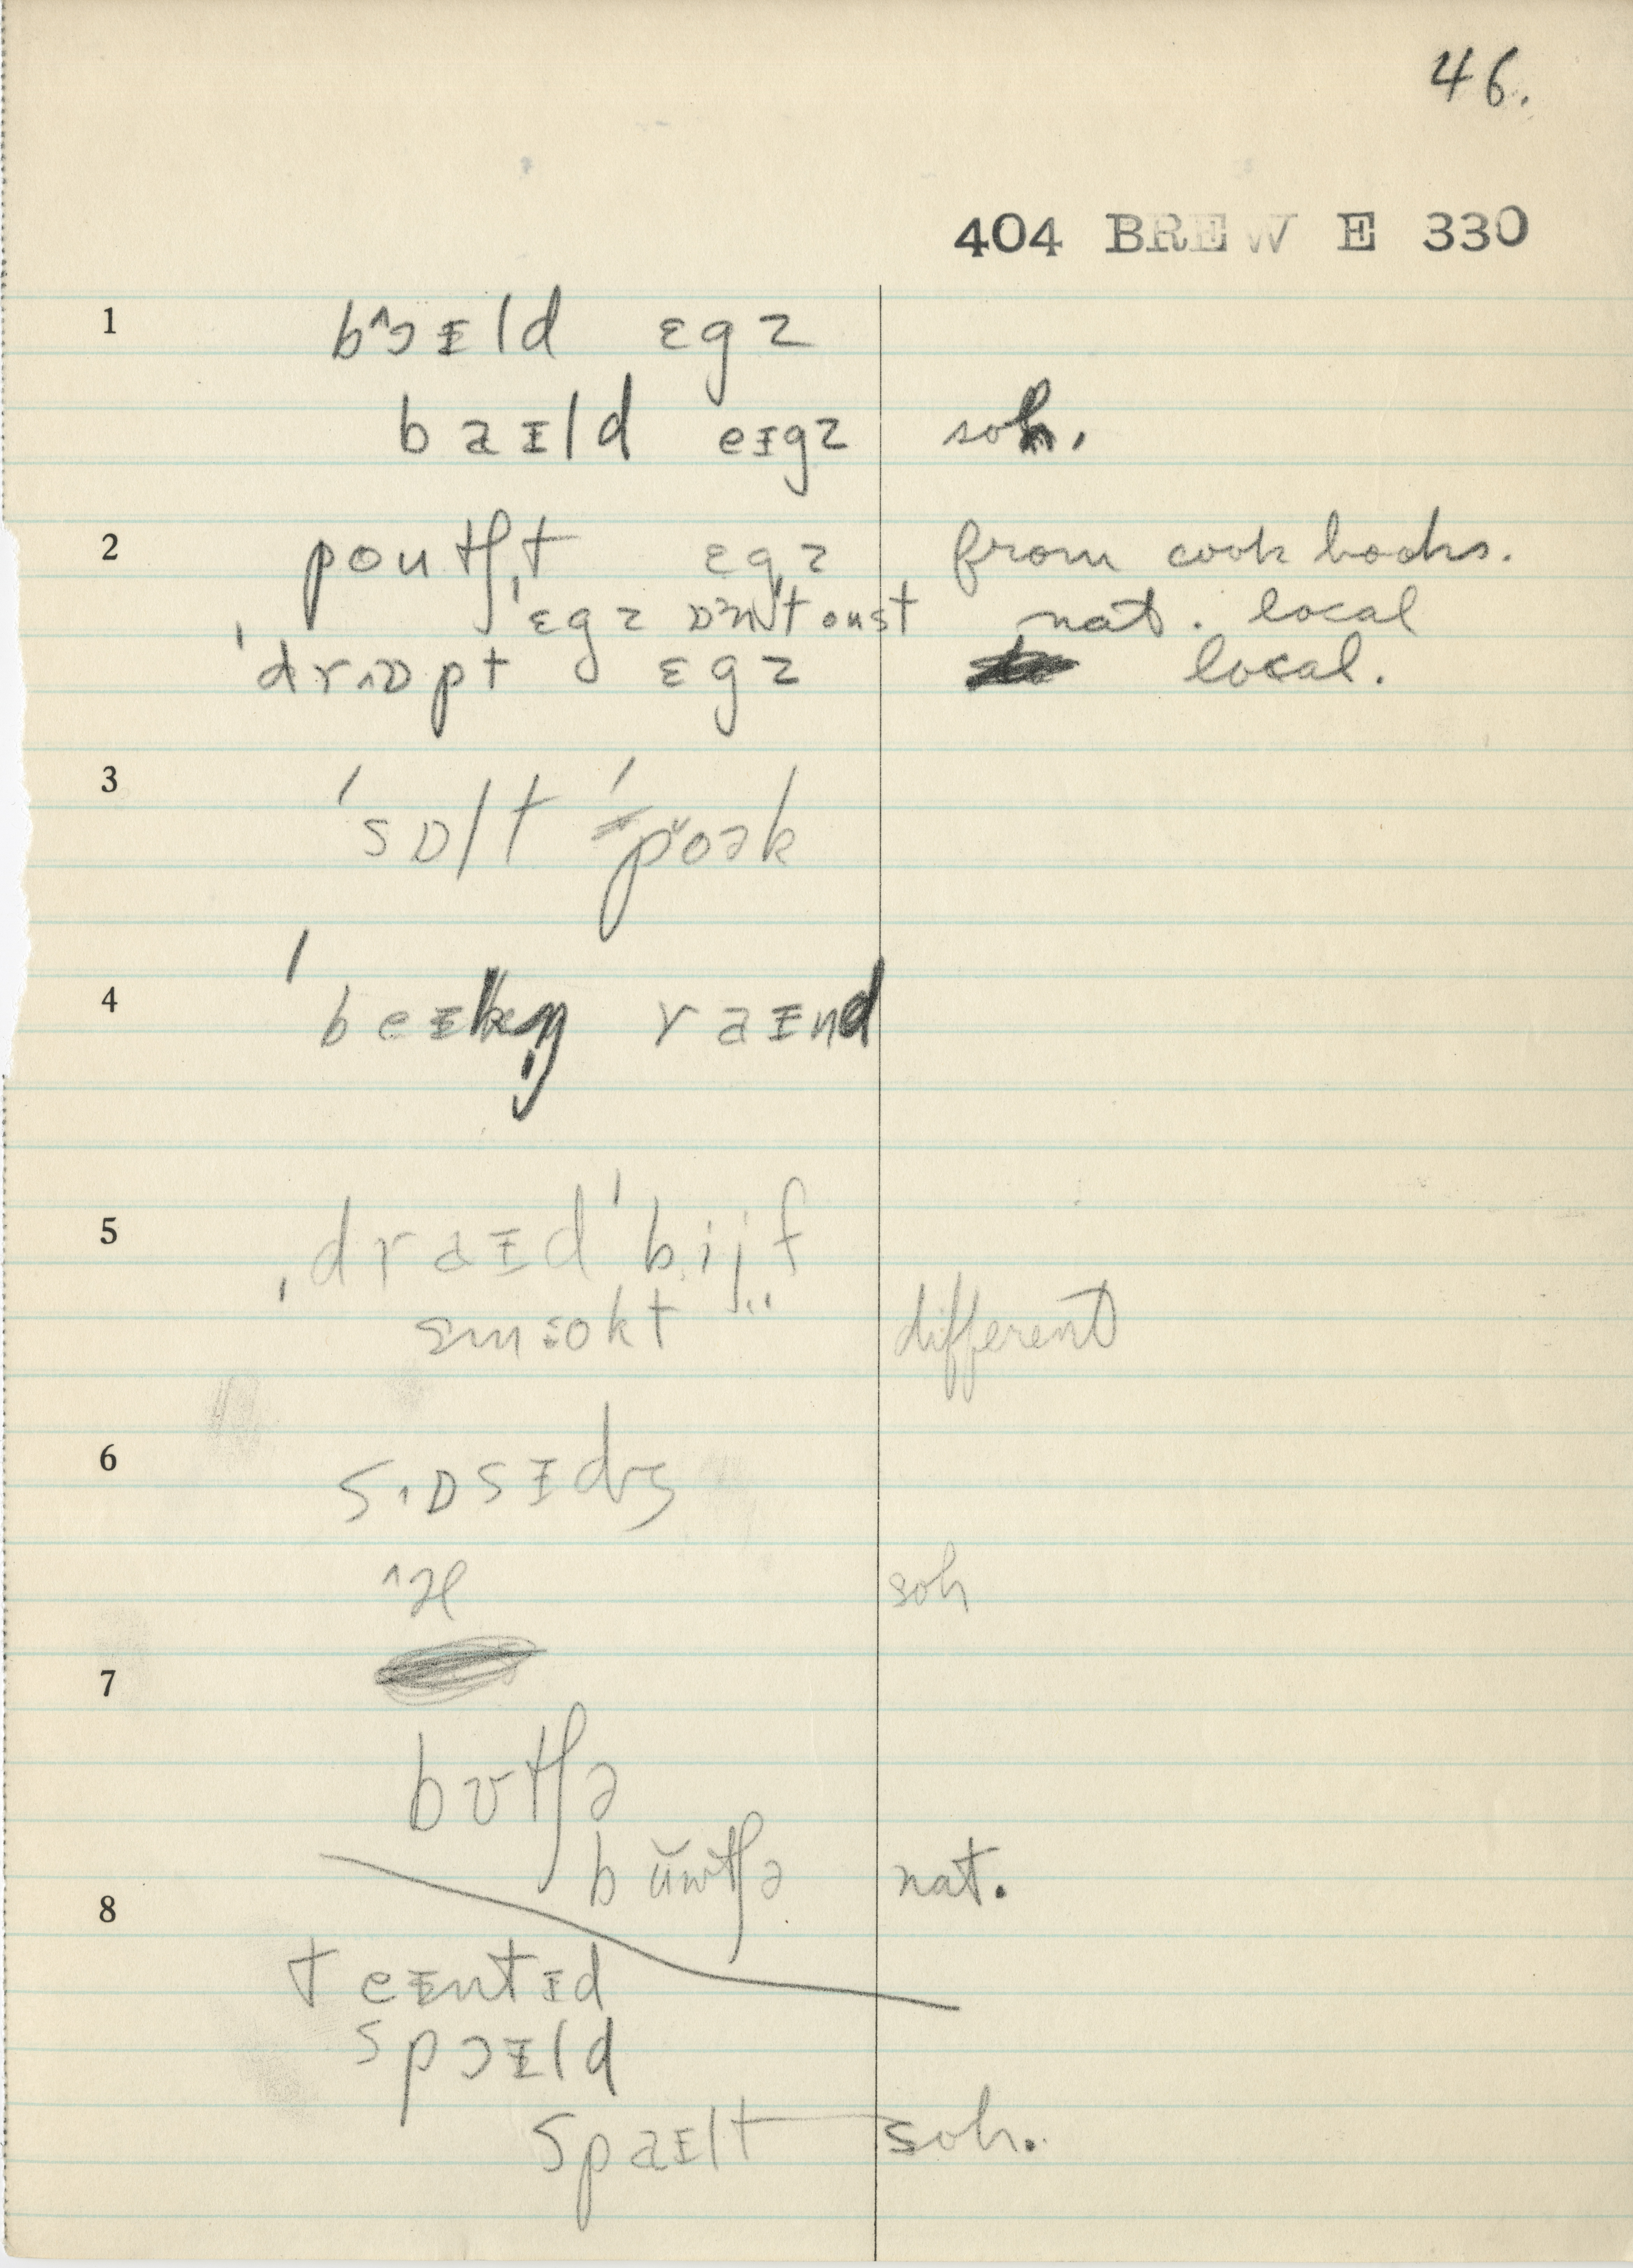 46.
404 BREW E 330
1 b^ɔɪld ɛgz
baɪld eɪgz soh.
2 poutʃt ɛgz from cook books.
ˈɛgz ɒn ˌtoust nat. local
ˈdrɒpt ɛgz local.
3 ˈsɒlt ˈpoək
4 ˈbeɪkn̩ raɪnd
5 ˌdraɪd ˈbijf
smokt different
6 sɒsɪdʒ
soh
7
bʊtʃə
bŭwtʃə nat.
8
teɪntɪd
spɔɪld
spaɪlt soh.